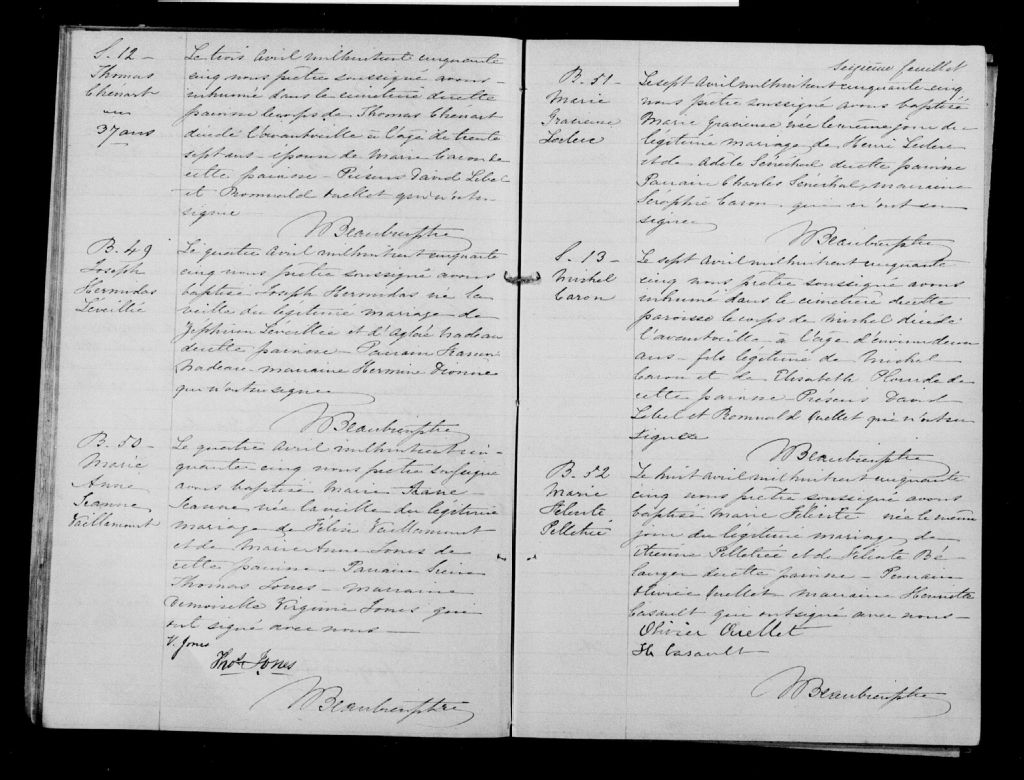 S. 12 -
Thomas
Chenart
37 ans
Le trois Avril mil huit cent cinquante
cinq nous prêtre soussigné avons
inhumé dans le cimetière de cette
paroisse le corps de Thomas Chénart
décédé l'avant veille à l'âge de trente
sept ans - époux de Marie Caron de
cette paroisse - Présens David Lebel
et Romuald Ouellet qui n'ont su
signer
N Beaubien ptre
B. 49
Joseph
Hermidas
Léveillée
Le quatre Avril mil huit cent cinquante
cinq nous prêtre soussigné avons
baptisé Joseph Hermidas né la
veille du légitime mariage de
Zéphirin Léveillée et d'Aglaé Nadeau
de cette paroisse - Parrain
Nadeau - marraine Hermine Dionne
qui n'ont su signer
N Beaubien ptre
B. 50 -
Marie
Anne
Jeanne
Vaillancourt
Le quatre Avril mil huit cent cin-
quante cinq nous prêtre soussigné
avons baptisé Marie Anne
Jeanne née la veille du légitime
mariage de Félix Vaillancourt
et de Marie Anne Jones de
cette paroisse - Parrain Sieur
Thomas Jones - marraine
Demoiselle Virginie Jones qui
ont signé avec nous -
V. Jones
Thos Jones
N Beaubien ptre
Seizième feuillet
B. 51 -
Marie
Gracieuse
Leclerc
Le sept Avril mil huit cent cinquante cinq
nous prêtre soussigné avons baptisé
Marie Gracieuse née le même jour du
légitime mariage de Henri Leclerc
et de Adèle Sénéchal de cette paroisse
Parrain Charles Sénéchal, marraine
Séraphie Caron qui n'ont su
signer
N Beaubien ptre
S. 13 -
Michel
Caron
Le sept Avril mil huit cent cinquante
cinq nous prêtre soussigné avons
inhumé dans le cimetière de cette
paroisse le corps de Michel décédé
l'avant veille - à l'âge d'environ deux
ans - fils légitime de Michel
Caron et de Elisabeth Plourde de
cette paroisse Présens David
Lebel et Romuald Ouellet qui n'ont su
signer
N Beaubien ptre
B. 52
Marie
Félicité
Pelletié
Le huit Avril mil huit cent cinquante
cinq nous prêtre soussigné avons
baptisé Marie Félicité née le même
jour du légitime mariage de
Etienne Pelletiée et de Félicité Bé-
langer de cette paroisse - Parrain
Olivier Ouellet marraine Henriette
Casault qui ont signé avec nous -
Olivier Ouellet
H. Casault
N Beaubien ptre